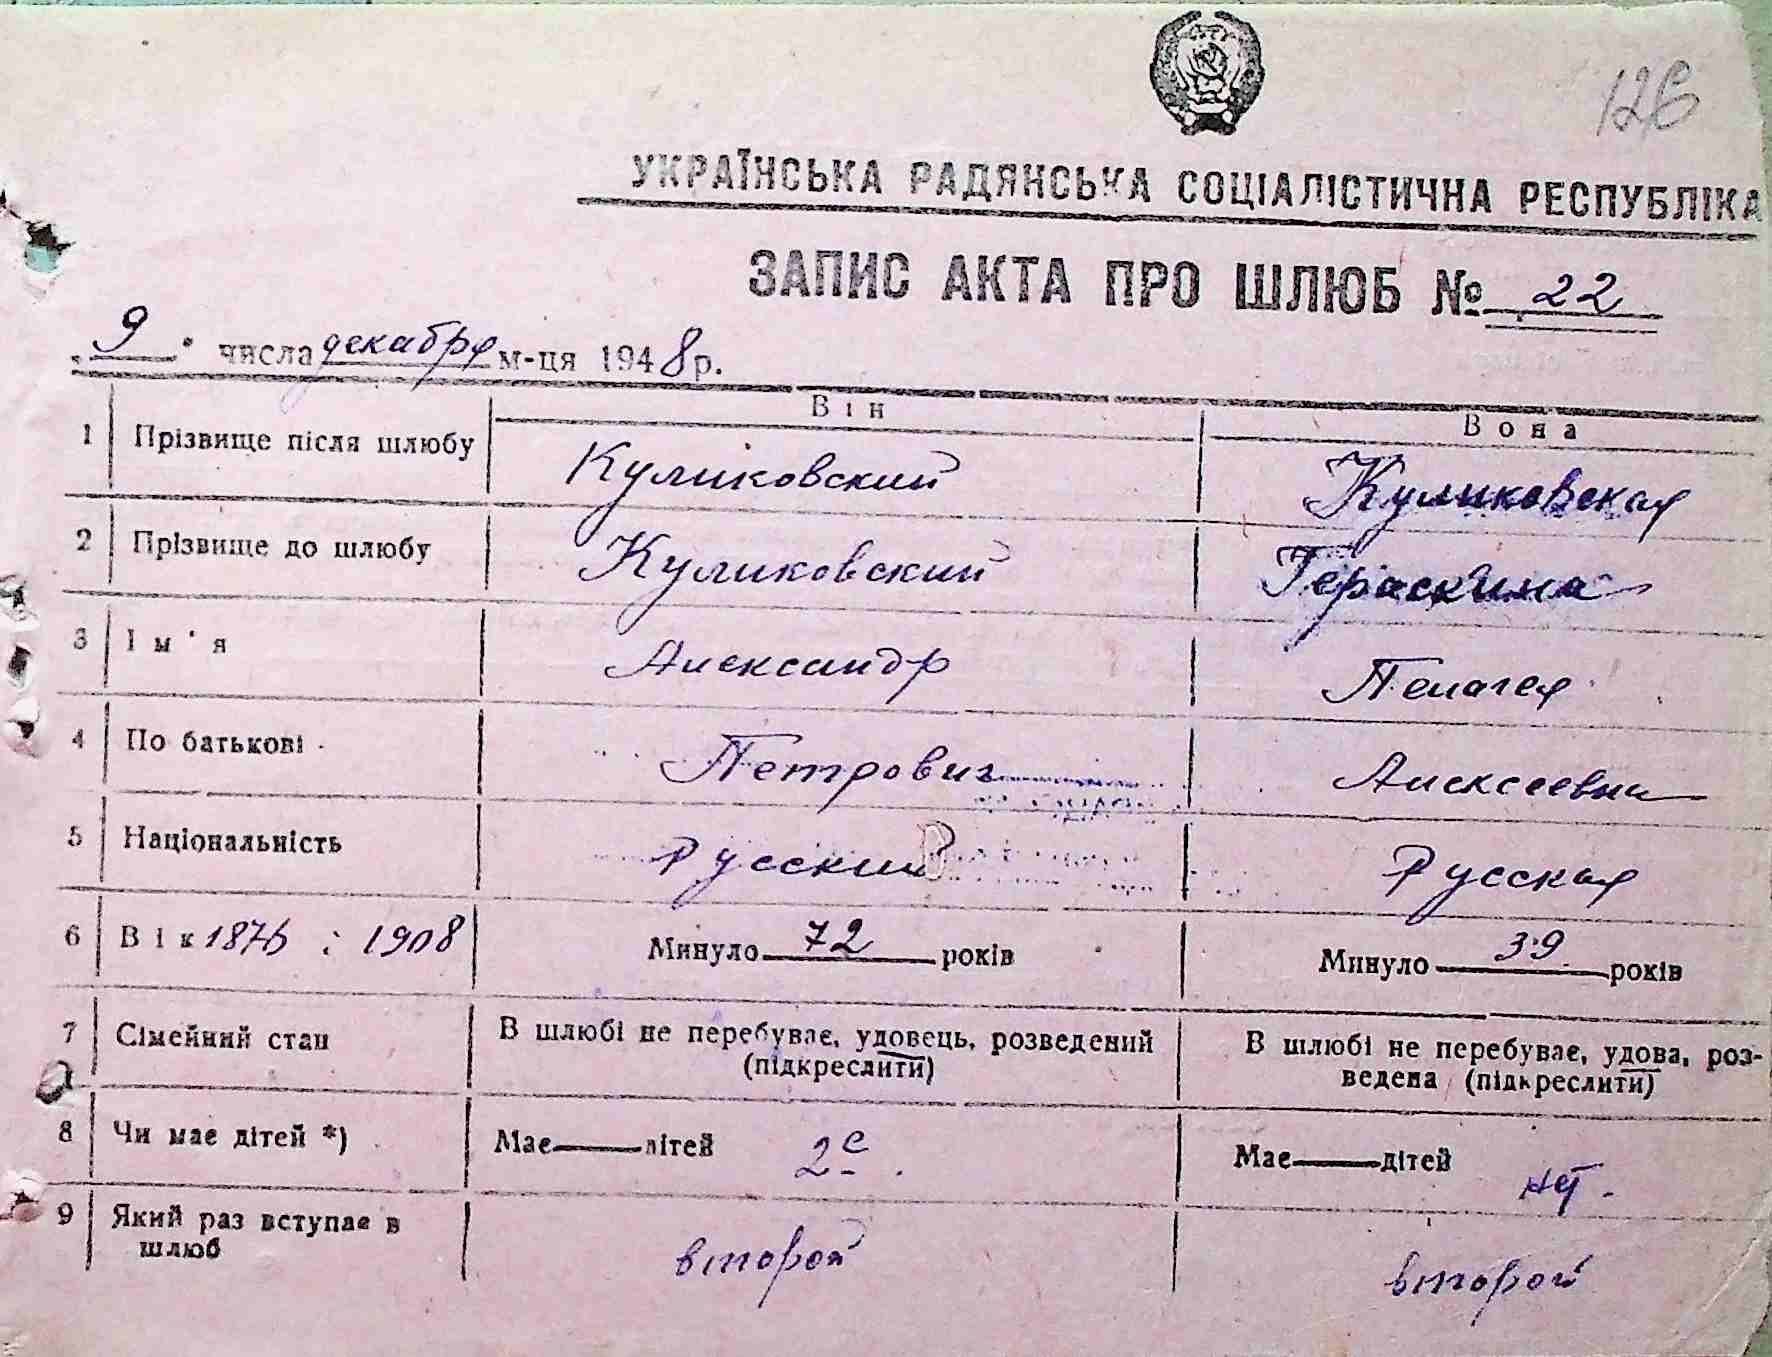 126
УКРАЇНСЬКА РАДЯНСЬКА СОЦІАЛІСТИЧНА РЕСПУБЛІКА
ЗАПИС АКТА ПРО ШЛЮБ № 22
„ 9 " числа декабря м-ця 1948 р.
Він Вона
1 Прізвище після шлюбу Куликовский Куликовская
2 Прізвище до шлюбу Куликовский Гераскина
3 Ім'я Александр Пелагея
4 По батькові Петрович Алексеевна
5 Національність Русский Русская
6 Вік 1876 : 1908 Минуло 72 років Минуло 39 років
7 Сімейний стан В шлюбі не перебуває, удовець, розведений В шлюбі не перебуває, удова, роз-
(підкреслити) ведена (підкреслити)
8 Чи має дітей *) Має дітей 2е Має дітей нет
9 Який раз вступає в второй второй
шлюб